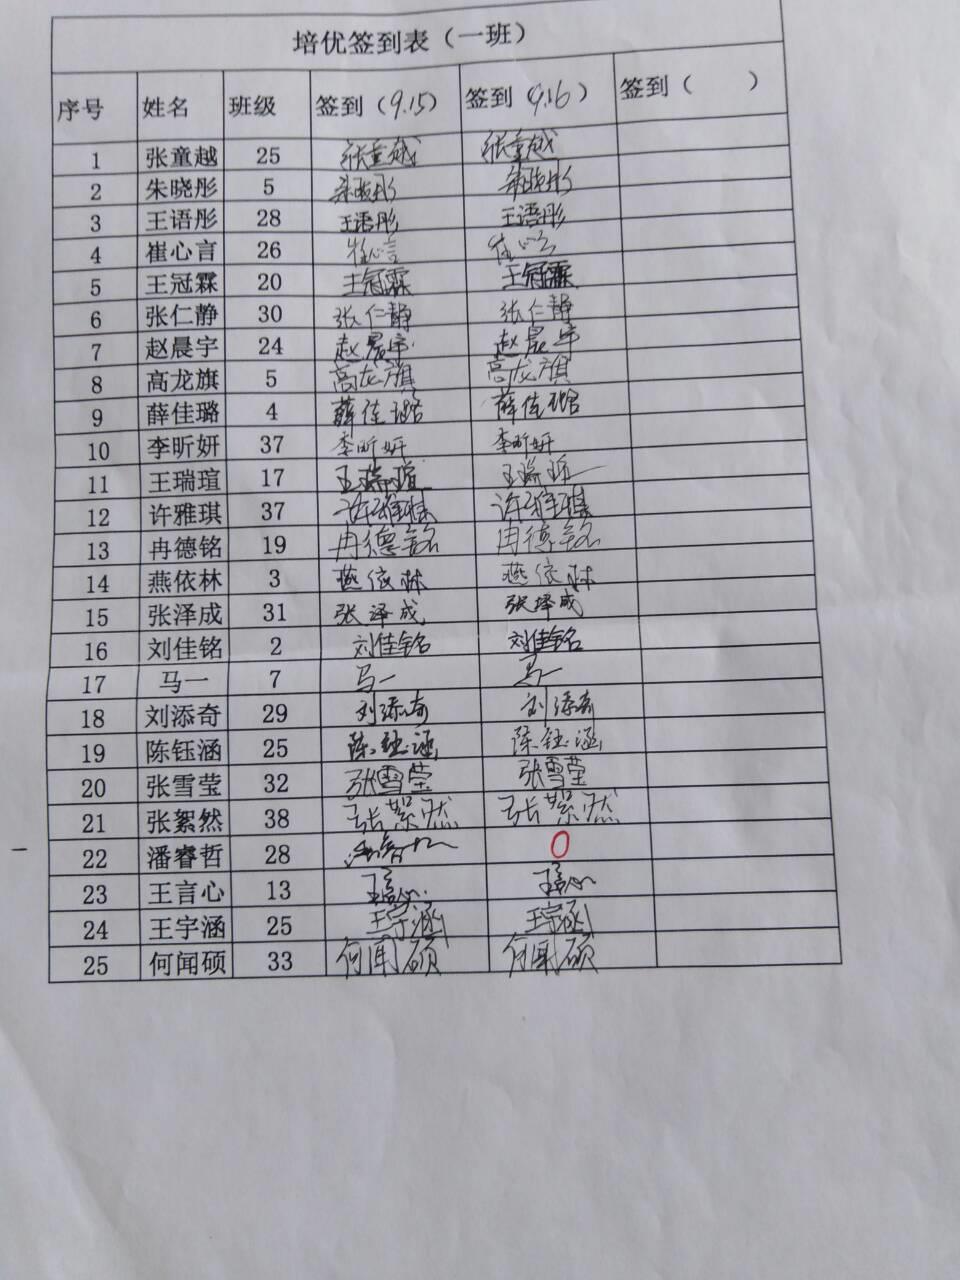 培优签到表（一班）
序号 姓名 班级 签到（9.15） 签到（9.16） 签到（ ）
1 张童越 25 张童越 张童越
2 朱晓彤 5 朱晓彤 朱晓彤
3 王语彤 28 王语彤 王语彤
4 崔心言 26 崔心言 崔心言
5 王冠霖 20 王冠霖 王冠霖
6 张仁静 30 张仁静 张仁静
7 赵晨宇 24 赵晨宇 赵晨宇
8 高龙旗 5 高龙旗 高龙旗
9 薛佳璐 4 薛佳璐 薛佳璐
10 李昕妍 37 李昕妍 李昕妍
11 王瑞瑄 17 王瑞瑄 王瑞瑄
12 许雅琪 37 许雅琪 许雅琪
13 冉德铭 19 冉德铭 冉德铭
14 燕依林 3 燕依林 燕依林
15 张泽成 31 张泽成 张泽成
16 刘佳铭 2 刘佳铭 刘佳铭
17 马一 7 马一 马一
18 刘添奇 29 刘添奇 刘添奇
19 陈钰涵 25 陈钰涵 陈钰涵
20 张雪莹 32 张雪莹 张雪莹
21 张絮然 38 张絮然 张絮然
22 潘睿哲 28 0
23 王言心 13 王言心 王言心
24 王宇涵 25 王宇涵 王宇涵
25 何闻硕 33 何闻硕 何闻硕